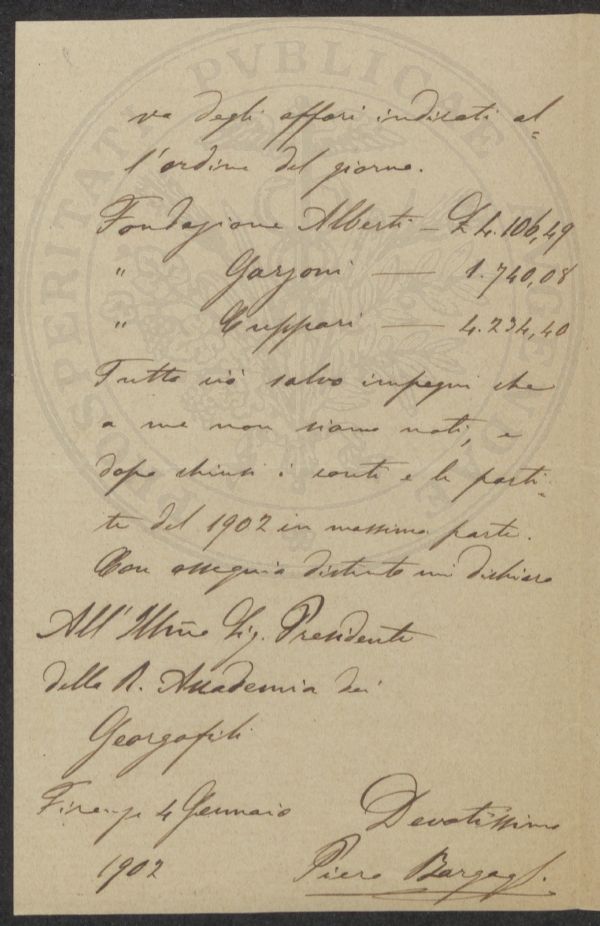 PROSPERITATI PVBLICAE AVGENDAE
va degli affari indicati al=
l'ordine del giorno.
Fondazione Alberti — £ 4.106,49
" Garzoni — 1.740,08
" Cuppari — 4.234,40
Tutto ciò salvo impegni che
a me non siano noti, e
dopo chiusi i conti e le parti=
te del 1902 in massima parte.
Con ossequio distinto mi dichiaro
All'Illmo Sig. Presidente
della R. Accademia dei
Georgofili
Firenze 4 Gennaio
1902
Devotissimo
Piero Bargagli